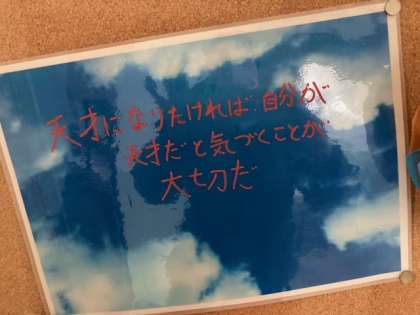 天才になりたければ自分が
天才だと気づくことが
大切だ